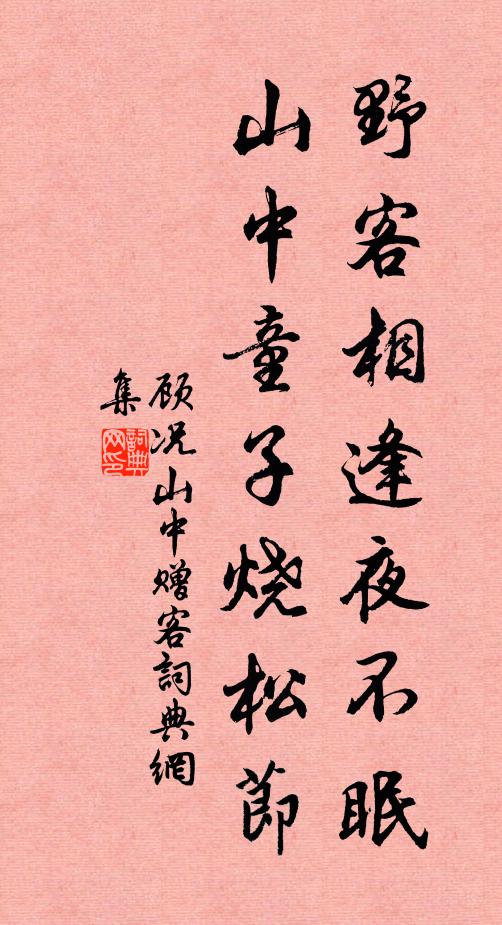 野客相逢夜不眠
山中童子烧松節
顾况山中赠客詞典網
集
詞典网印